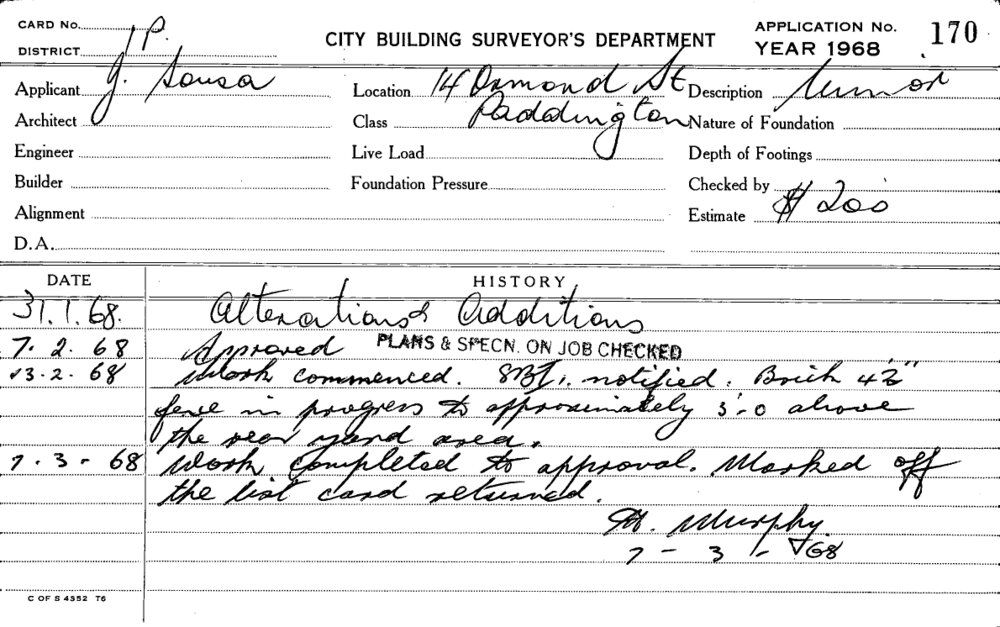 CARD No.
DISTRICT 1P.
CITY BUILDING SURVEYOR'S DEPARTMENT
APPLICATION No. 170
YEAR 1968
Applicant J. Sousa
Location 14 Ormond St
Paddington
Description Minor
Architect
Class
Nature of Foundation
Engineer
Live Load
Depth of Footings
Builder
Foundation Pressure
Checked by
Alignment
Estimate $200
D.A.
DATE HISTORY
31.1.68. Alterations & Additions
7.2.68 Approved PLANS & SPECN. ON JOB CHECKED
13-2-68 Work commenced. notified. Brick 4½"
fence in progress to approximately 3'-0 above
the rear yard area.
7-3-68 Work completed to approval. Marked off
the list card returned.
Murphy
7-3-68
C OF S 4352 T6